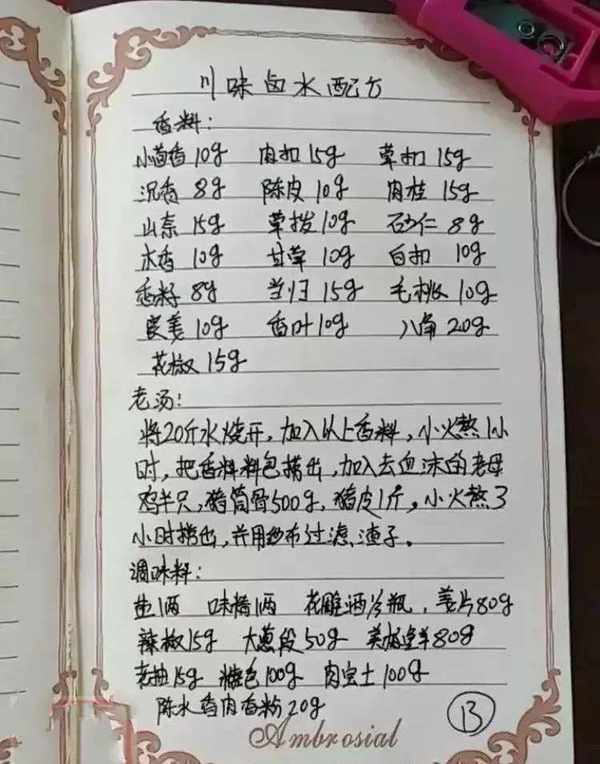 川味卤水配方
香料:
小茴香10g 肉扣15g 草扣15g
沉香8g 陈皮10g 肉桂15g
山奈15g 草拨10g 石少仁8g
木香10g 甘草10g 白扣10g
香籽8g 当归15g 毛桃10g
良姜10g 香叶10g 八角20g
花椒15g
老汤:
将20斤水烧开,加入以上香料,小火熬1小
时,把香料料包捞出,加入去血沫的老母
鸡半只,猪筒骨500g,猪皮1斤,小火熬3
小时捞出,并用纱布过滤渣子。
调味料:
盐1两 味精1两 花雕酒 瓶,姜片80g
辣椒15g 大葱段50g 美极鲜80g
老抽15g 糖色100g 肉宝王100g
陈水 肉香粉20g
13
Ambrosial